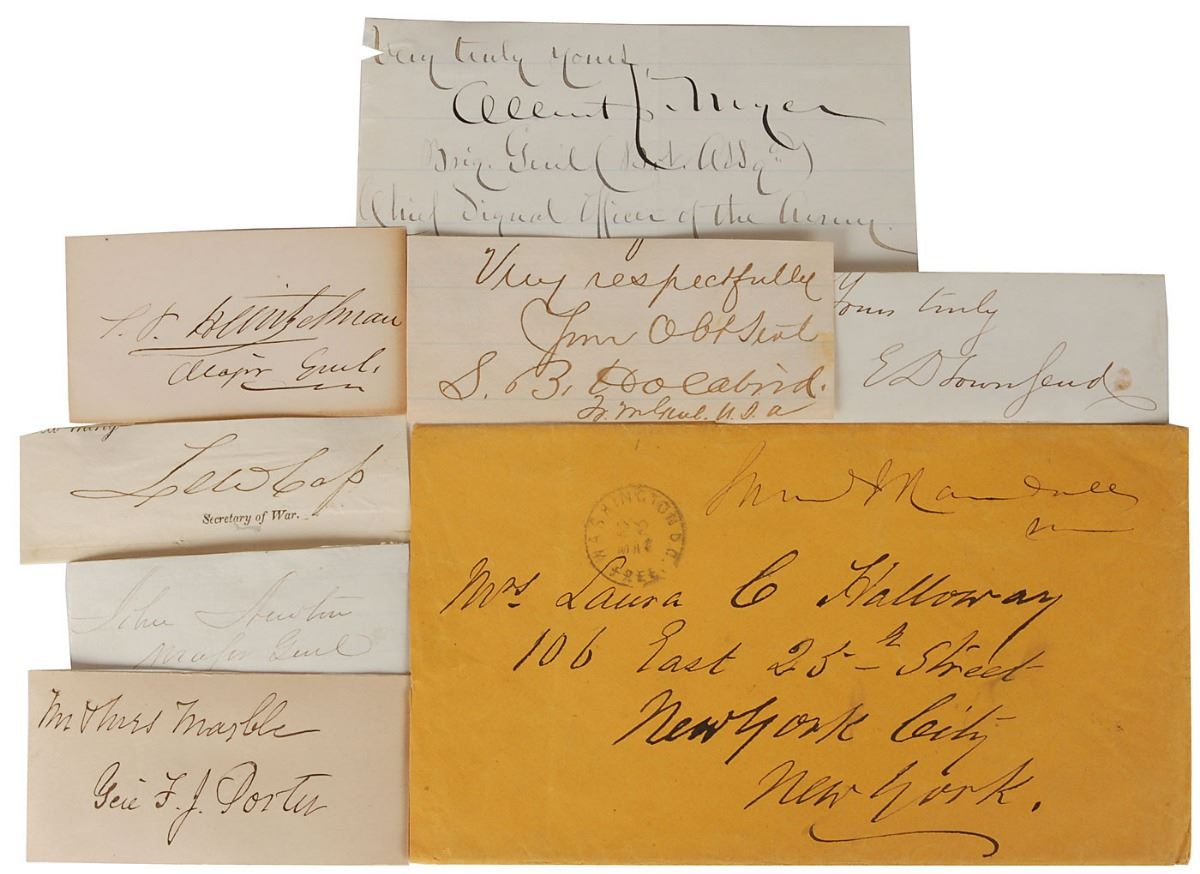 Very truly yours,
Albert J. Myer
Brig. Genl (Bvt. Assg'd)
Chief Signal Officer of the Army.
S. P. Heintzelman
Major Genl.
Very respectfully
Your Obt Servt
S. B. Holabird.
Qr. M Genl. U.S.A
Yours truly
E D Townsend
Lew Cass
Secretary of War.
John Newton
Major Genl
Mr & Mrs Marble
Gen F. J. Porter
WASHINGTON D.C.
MAR
FREE
Mrs Laura C Holloway
106 East 25th Street
New York City
New York.